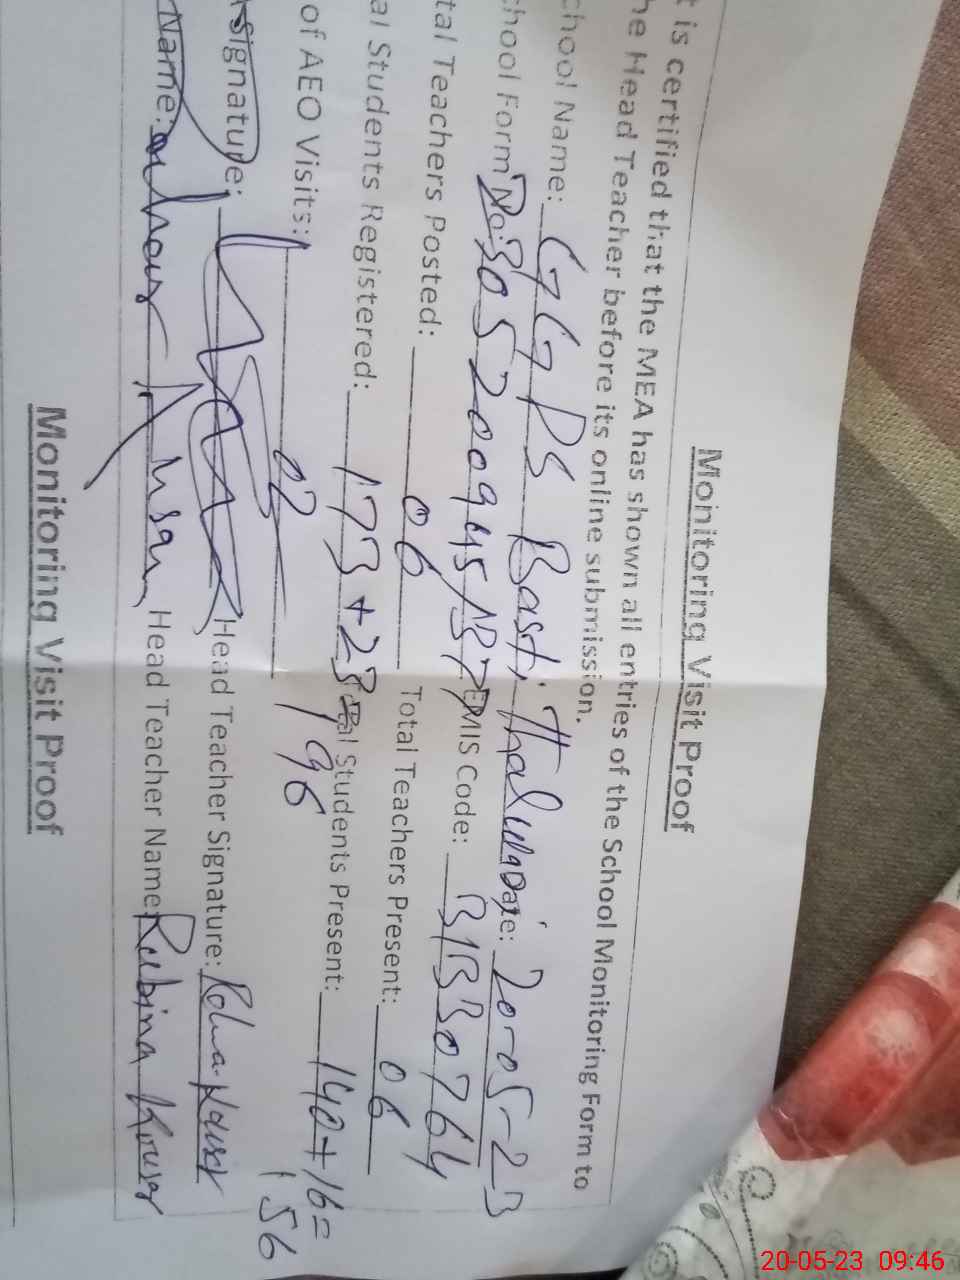 Monitoring Visit Proof
t is certified that the MEA has shown all entries of the School Monitoring Form to
he Head Teacher before its online submission.
chool Name: GGPS Basti Date: 20-05-23
chool Form No: EMIS Code: 31330764
tal Teachers Posted: 06 Total Teachers Present: 06
al Students Registered: 173 + 23 = 196 al Students Present: 140 + 16 = 156
of AEO Visits: 02
Signature: Head Teacher Signature:
Name: Head Teacher Name: Rubina Kouser
Monitoring Visit Proof
20-05-23 09:46